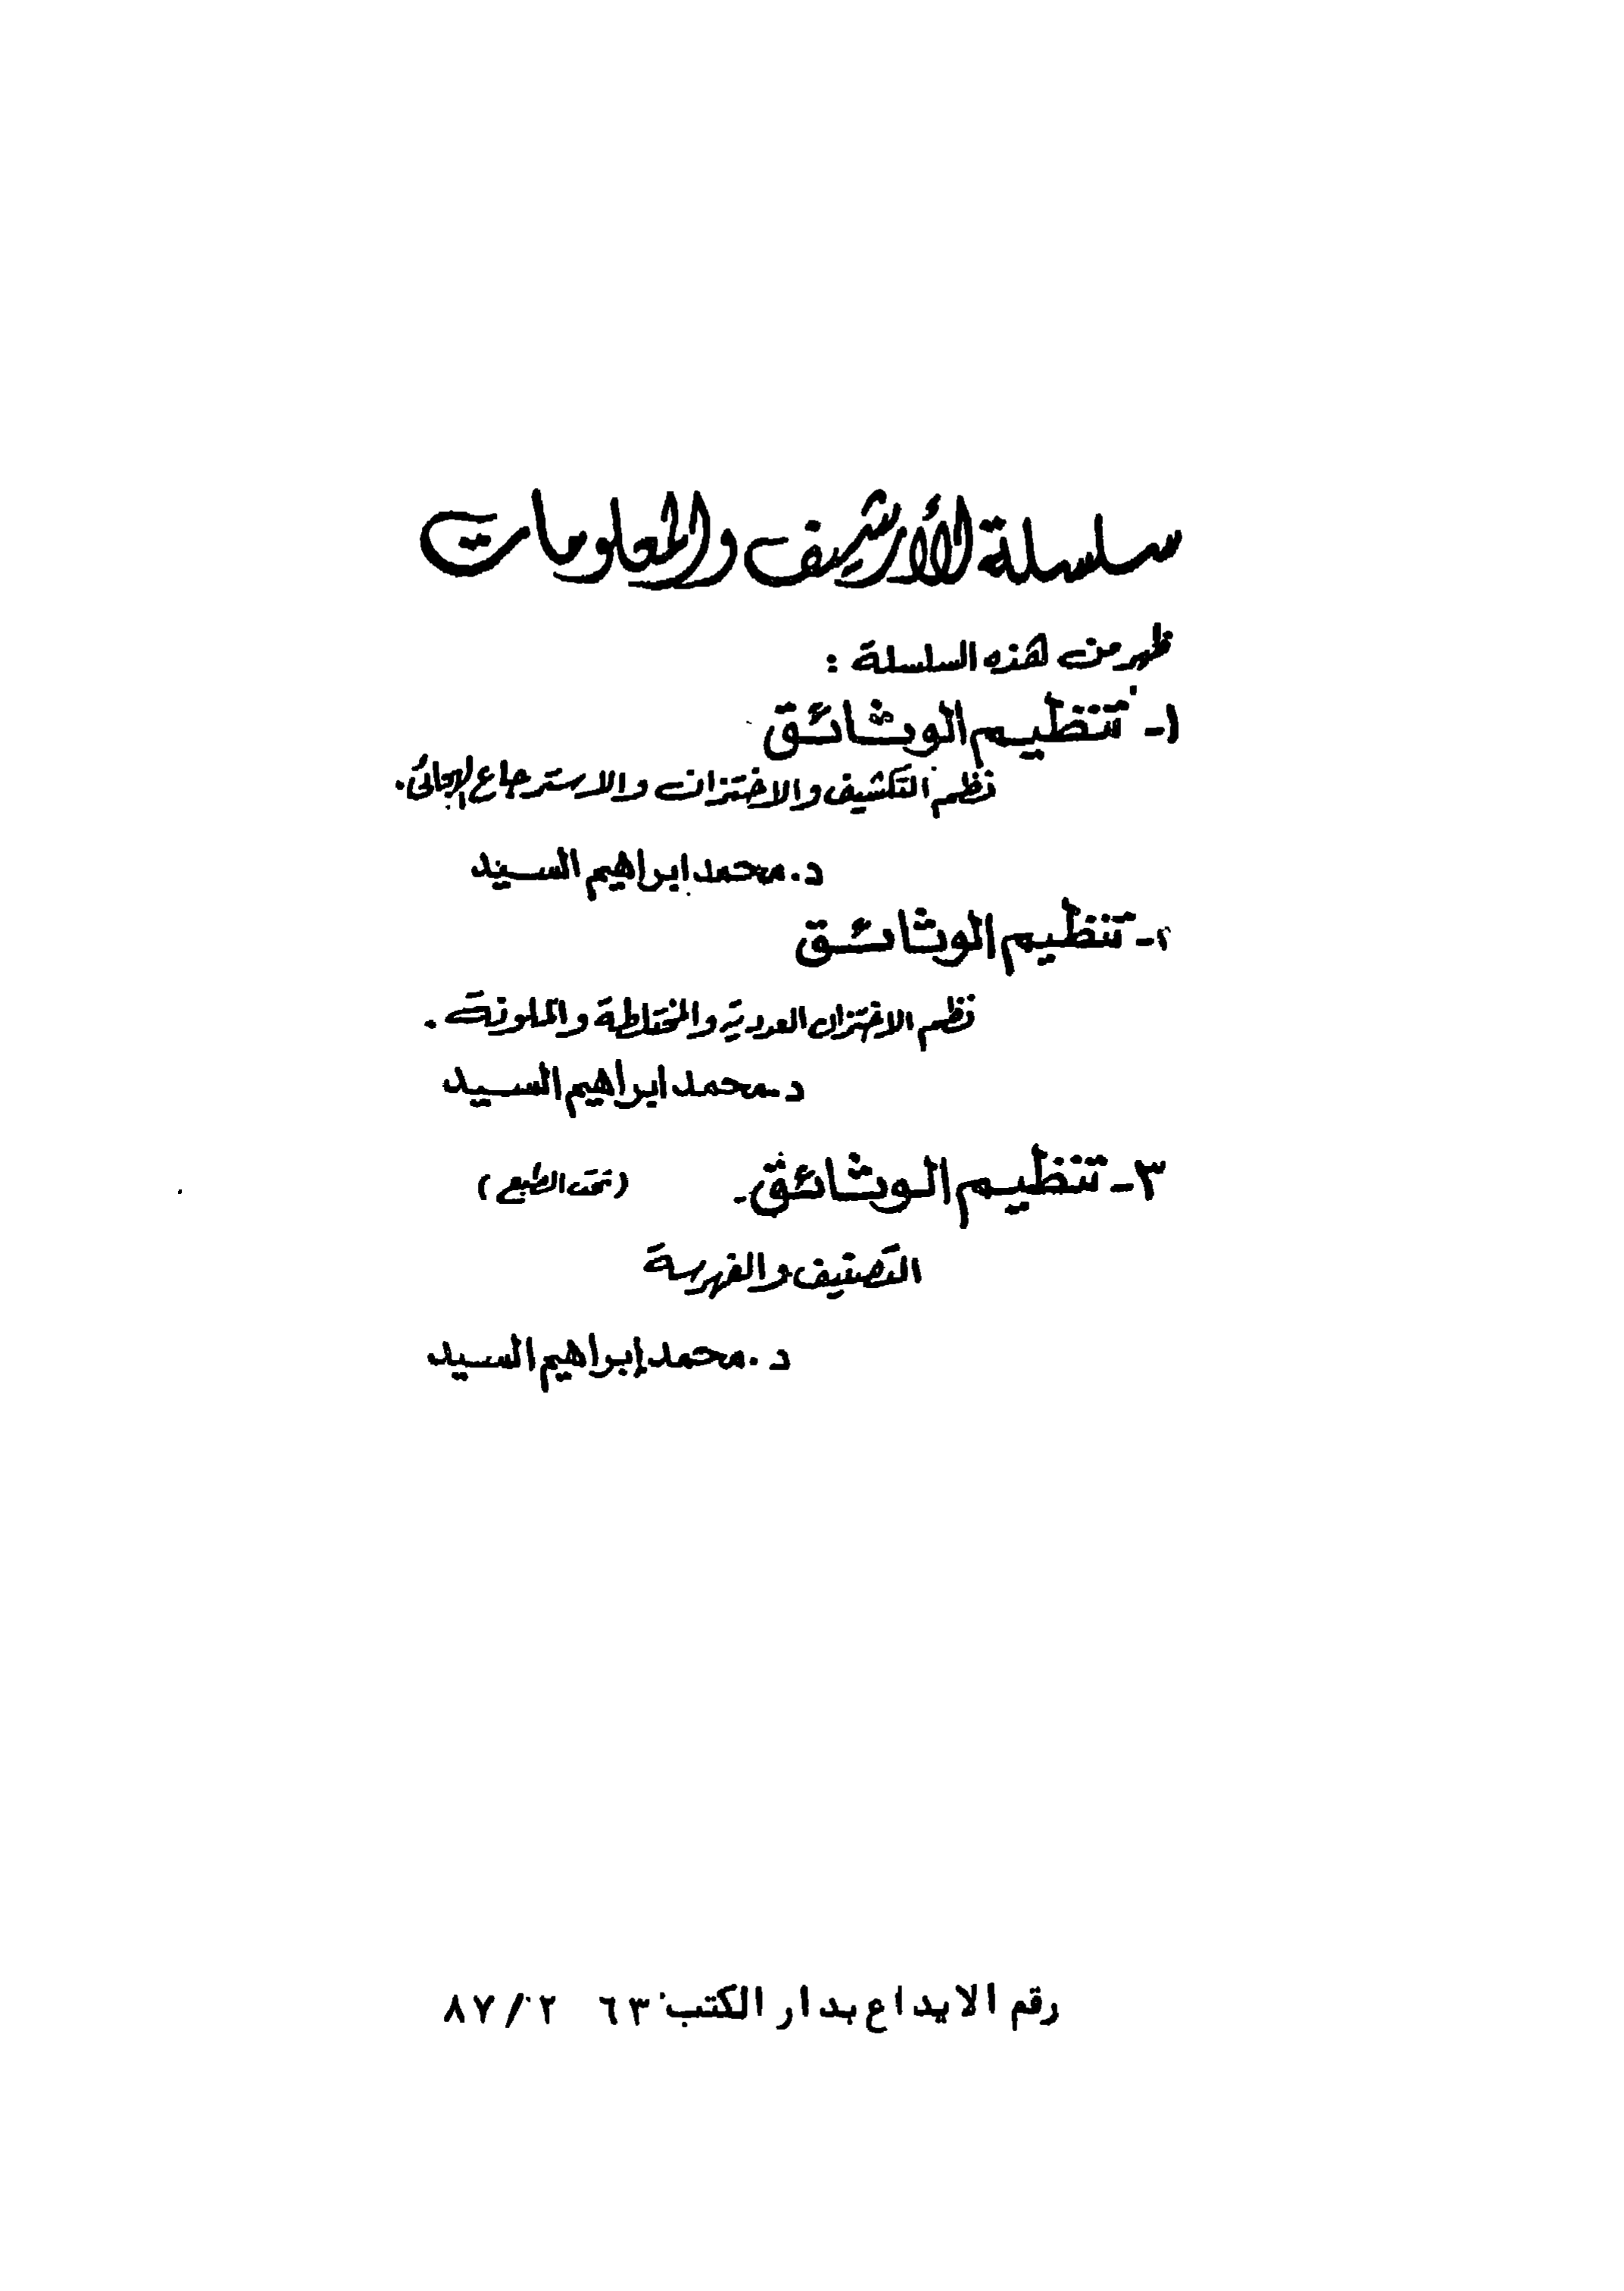 سلسلة الأرشيف والمعلومات
ظهر من هذه السلسلة :
١- تنظيم الوثائق
نظم التكشيف والاختزان والاسترجاع الهجائى.
د. محمد ابراهيم السيد
٢- تنظيم الوثائق
نظم الاختزان العددية والمختلطة والملونة .
د. محمد ابراهيم السيد
٣- تنظيم الوثائق - (تحت الطبع)
التصنيف والفهرسة
د. محمد إبراهيم السيد
رقم الايداع بدار الكتب ٦٣ ٨٧/٢